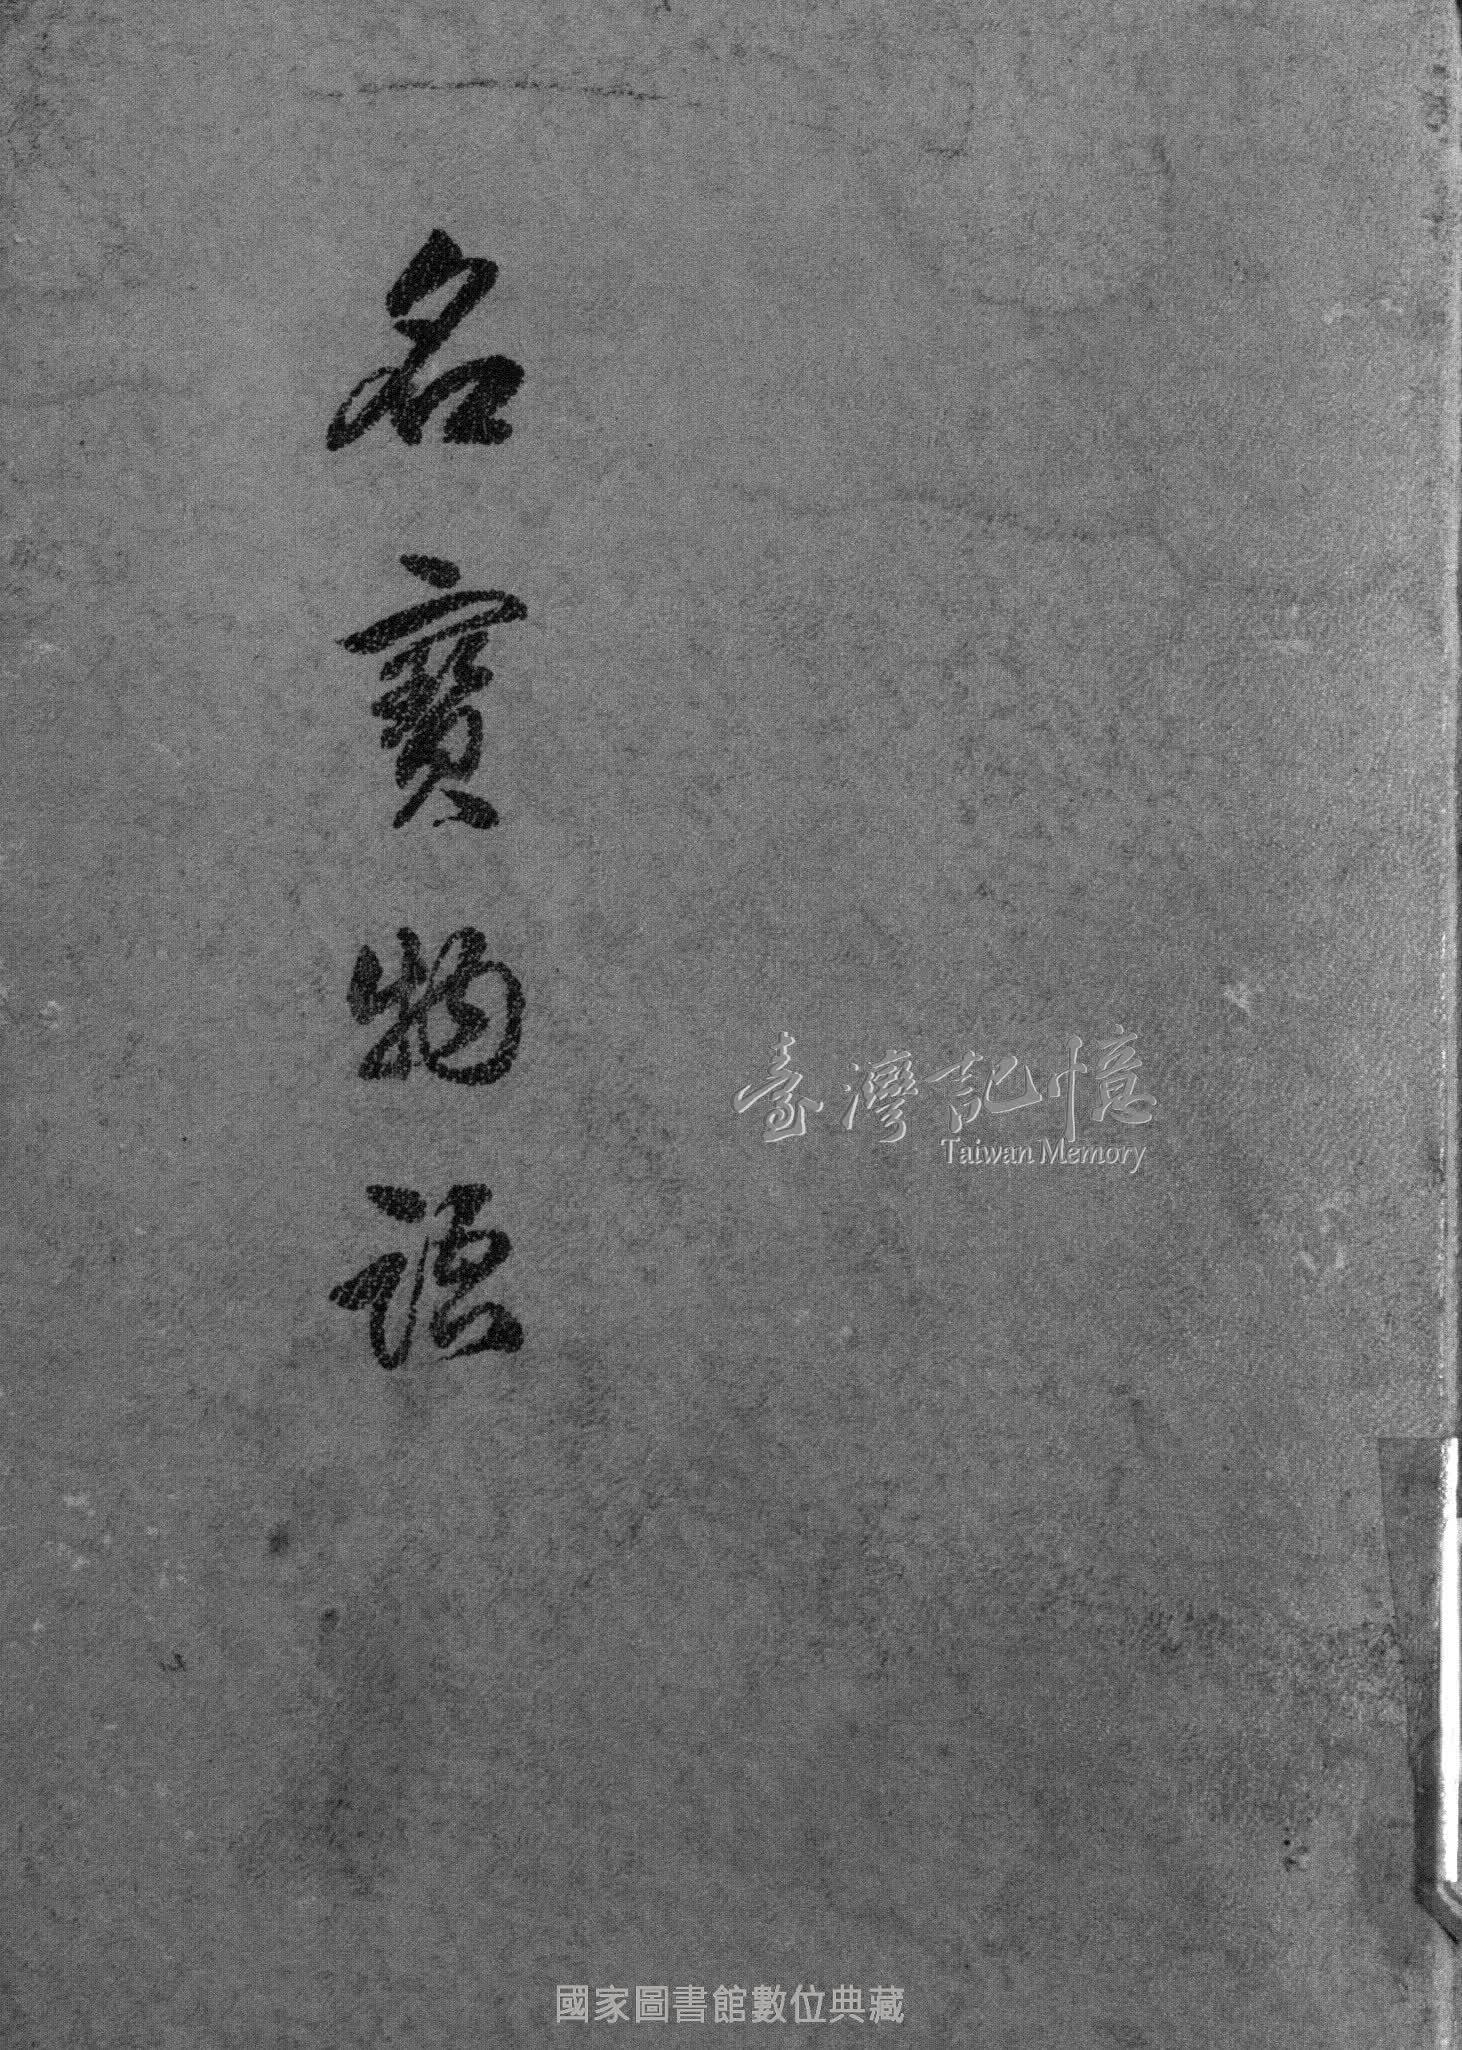 名寶物語
臺灣記憶
Taiwan Memory
國家圖書館數位典藏